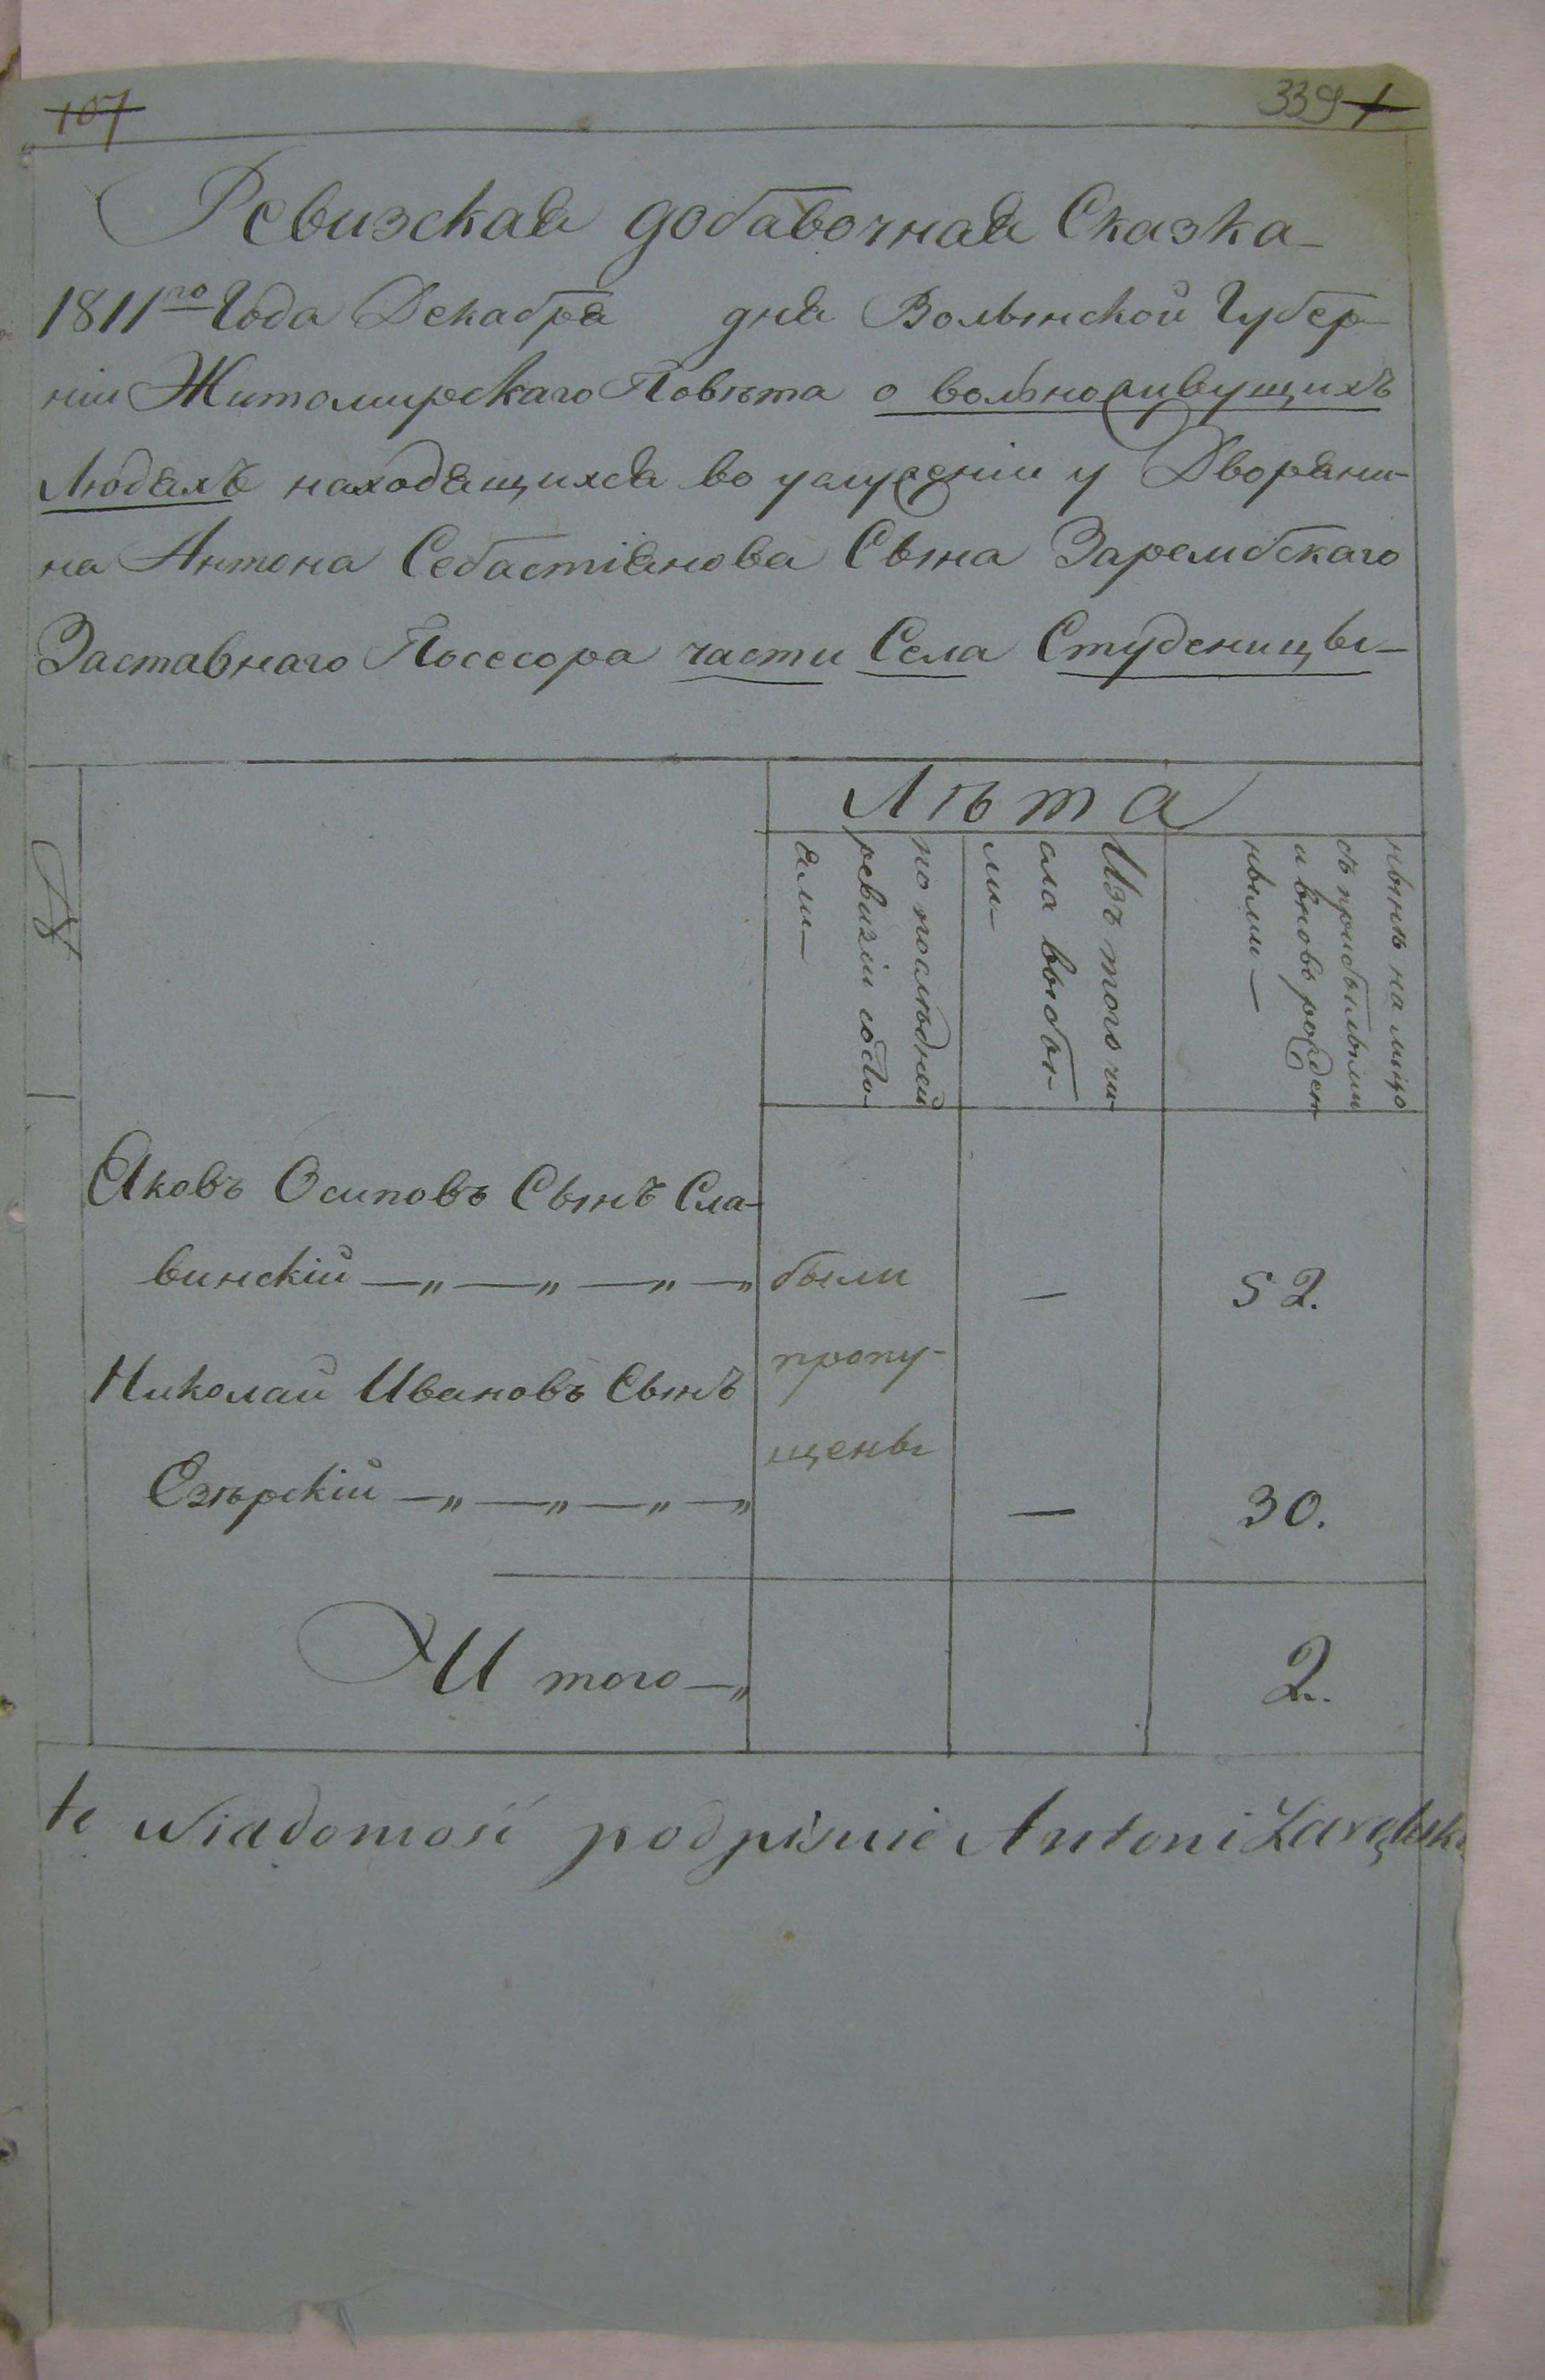 107
339 1
Ревизская добавочная Сказка
1811го Года Декабря дня Волынской Губер-
ніи Житомирскаго Повѣта о вольноживущихъ
Людяхъ находящихся во услуженіи у Дворяни-
на Антона Себастіянова Сына Зарембскаго
Заставнаго Посесора части Села Студеницы
Лѣта
по послѣдней
ревизіи состо-
яли
Изъ того чи-
сла выбы-
ли
нынѣ на лицо
съ прибылыми
и вновь рожден
ными
Яковъ Осиповъ Сынъ Сла-
винскій были — 52.
пропу-
Николай Ивановъ Сынъ
щены
Езѣрскій — 30.
И того 2.
te wiadomość podpisuie Antoni Zarębski